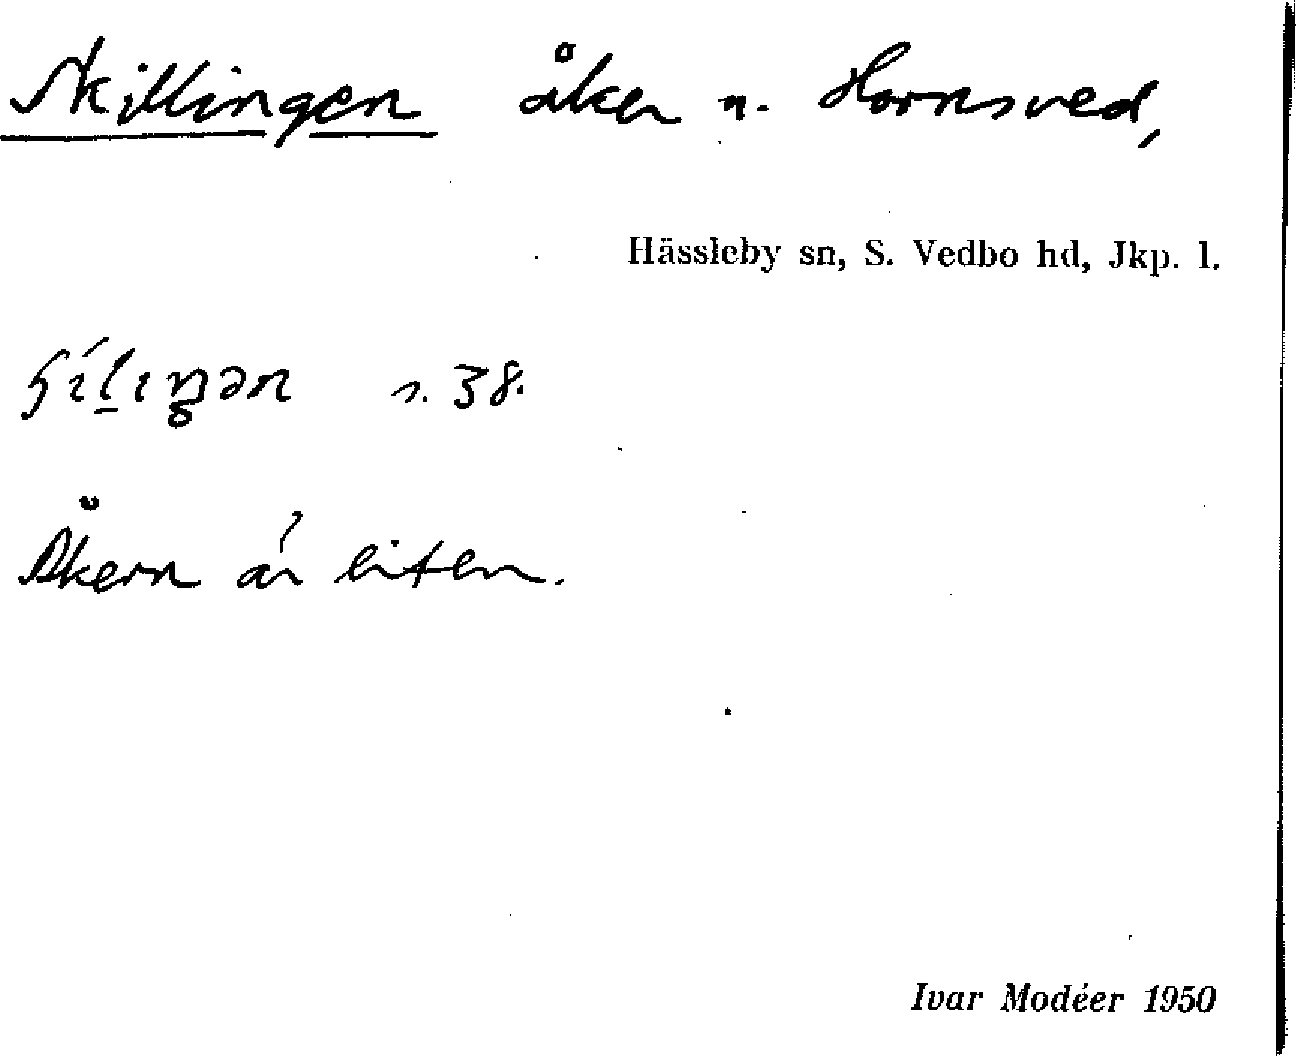 Skillingen åker n. Hornsved,
Hässleby sn, S. Vedbo hd, Jkp. l.
s. 38.
Åkern är liten.
Ivar Modéer 1950